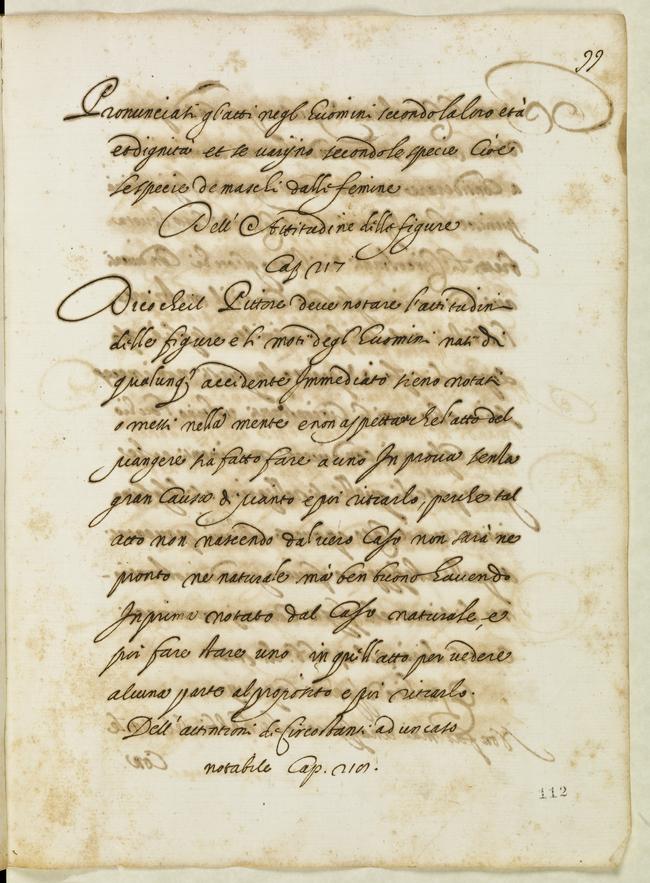 99
Pronunciati gl'atti negl' huomini secondo la loro età
et dignità et se varijno secondo le specie cioè
le specie de maschi dalle femine
Dell' Attitudine delle figure
Cap 217
Dico che il Pittore deve notare l'attitudin
delle figure e li moti degl' huomini nati di
qualunq; accidente Immediato sieno notati
o messi nella mente e non aspettar che l'atto del
piangere sia fatto fare a uno In prova senza
gran Causa di pianto e poi ritrarlo, perche tal
atto non nascendo dal vero Caso non sarà ne
pronto ne naturale mà ben buono havendo
In prima notato dal Caso naturale, e
poi fare stare uno in quell' atto per vedere
alcuna parte al proposito e poi ritrarlo.
Dell' attintioni de Circostanti ad un caso
notabile Cap.
112